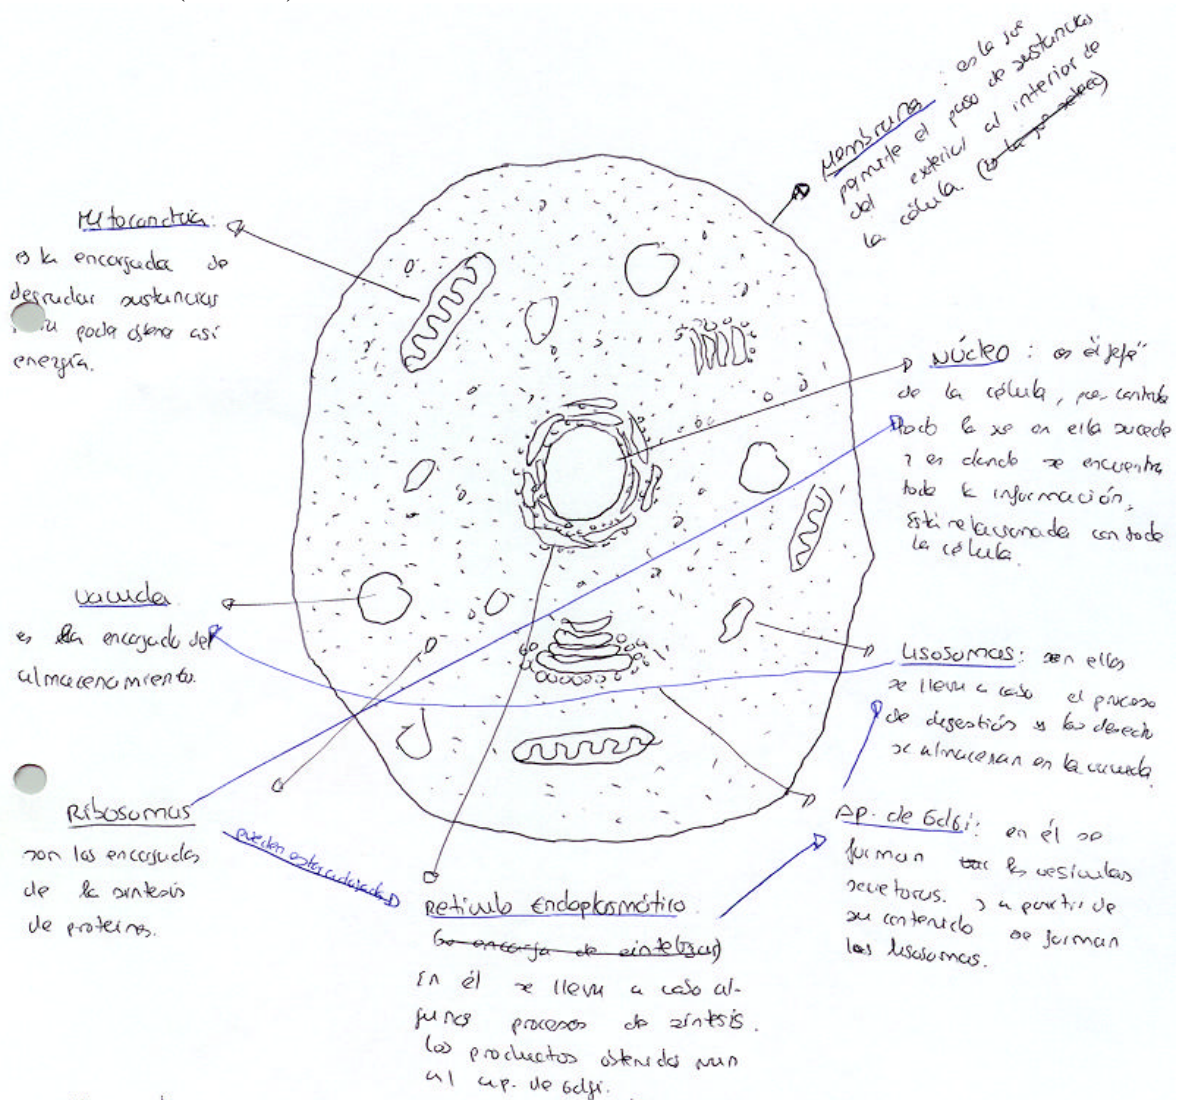 Membrana : es la que
permite el paso de sustancias
del exterior al interior de
la célula. (es la que
Mitocondria:
es la encargada de
degradar sustancias
poder obtener así
energía.
Núcleo : es el "jefe"
de la célula, pues controla
todo lo que en ella sucede
y es donde se encuentra
toda la información.
Está relacionada con toda
la célula.
Vacuola
es la encargada del
almacenamiento.
Lisosomas: en ellos
se lleva a cabo el proceso
de digestión y los desechos
se almacenan en la vacuola.
Ribosomas
son los encargados
de la síntesis
de proteínas.
pueden estar adosados
Retículo Endoplasmático
Se encarga de sintetizar
En él se lleva a cabo al-
gunos procesos de síntesis.
Los productos obtenidos van
al ap. de Golgi.
Ap. de Golgi: en él se
forman las vesículas
secretoras. y a partir de
su contenido se forman
los lisosomas.